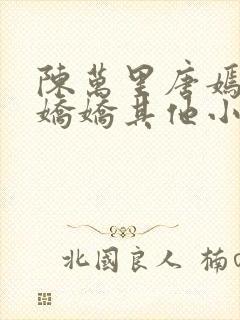 陳萬里唐嫣
嬌嬌其他小
北國良人 楠